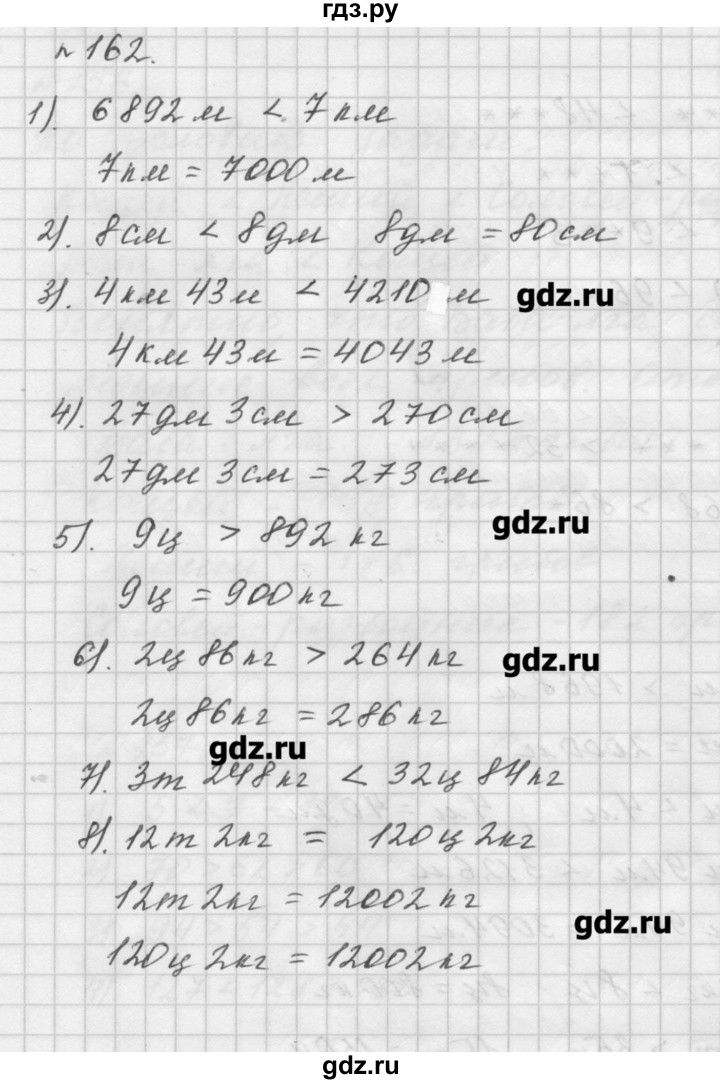 гдз.ру
№ 162.
1). 6892 м < 7 км
7 км = 7000 м
2). 8 см < 8 дм 8 дм = 80 см
3). 4 км 43 м < 4210 м gdz.ru
4 км 43 м = 4043 м
4). 27 дм 3 см > 270 см
27 дм 3 см = 273 см
5). 9 ц > 892 кг gdz.ru
9 ц = 900 кг
6). 2 ц 86 кг > 264 кг gdz.ru
2 ц 86 кг = 286 кг
gdz.ru
7). 3 т 248 кг < 32 ц 84 кг
8). 12 т 2 кг = 120 ц 2 кг
12 т 2 кг = 12002 кг
gdz.ru
120 ц 2 кг = 12002 кг
gdz.ru